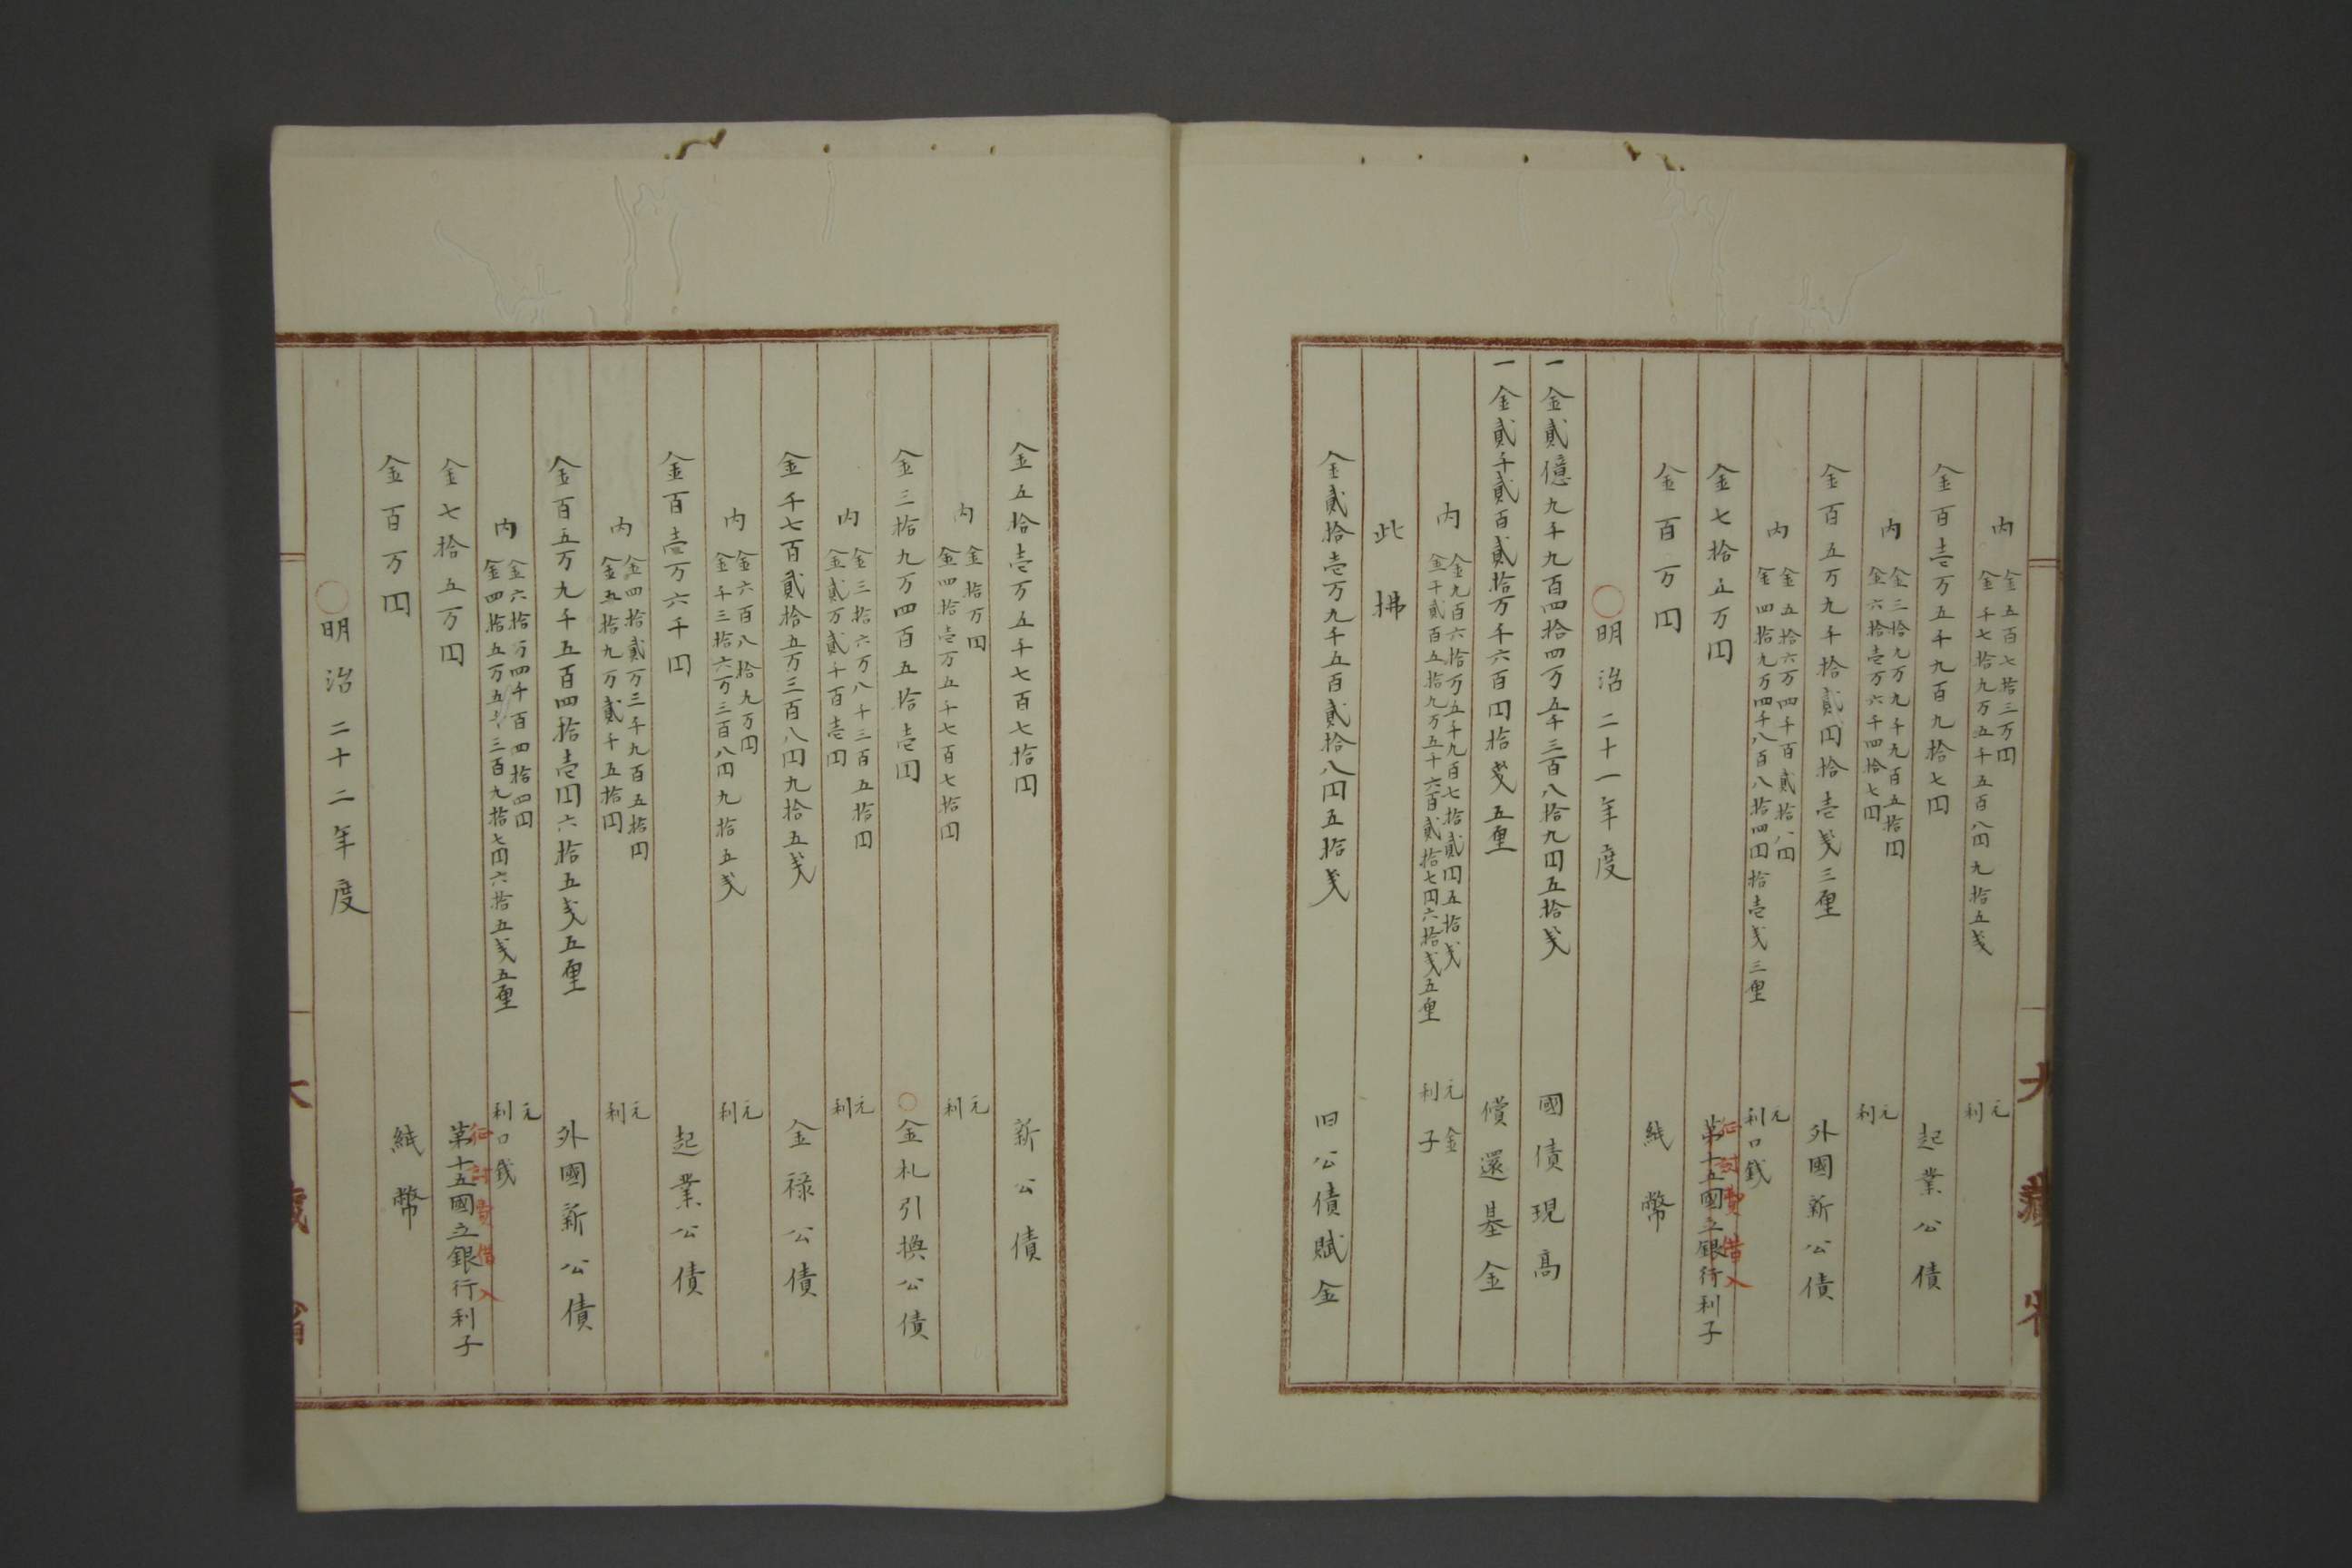 内 金五百七拾三万円 元
金千七拾九万五千五百八円九拾五戋 利
金百壱万五千九百九拾七円 起業公債
内 金三拾九万九千九百五拾円 元
金六拾壱万六千四拾七円 利
金百五万九千拾貳円拾壱戋三厘 外國新公債
内 金五拾六万四千百貳拾八円 元
金四拾九万四千八百八拾四円拾壱戋三厘 利口銭
征討費借入
金七拾五万円 第十五國立銀行利子
金百万円 紙幣
○明治二十一年度
一金貳億九千九百四拾四万五千三百八拾九円五拾戋 國債現高
一金貳千貳百貳拾万千六百円拾戋五厘 償還基金
内 金九百六拾万五千九百七拾貳円五拾戋 元金
金千貳百五拾九万五千六百貳拾七円六拾戋五厘 利子
此拂
金貳拾壱万九千五百貳拾八円五拾戋 旧公債賦金
大藏省
金五拾壱万五千七百七拾円 新公債
内 金拾万円 元
金四拾壱万五千七百七拾円 利
金三拾九万四百五拾壱円 ○金札引換公債
内 金三拾六万八千三百五拾円 元
金貳万貳千百壱円 利
金千七百貳拾五万三百八円九拾五戋 金禄公債
内 金六百八拾九万円 元
金千三拾六万三百八円九拾五戋 利
金百壱万六千円 起業公債
内 金四拾貳万三千九百五拾円 元
金五拾九万貳千五拾円 利
金百五万九千五百四拾壱円六拾五戋五厘 外國新公債
内 金六拾万四千百四拾四円 元
金四拾五万五千三百九拾七円六拾五戋五厘 利口銭
征討費借入
金七拾五万円 第十五國立銀行利子
金百万円 紙幣
○明治二十二年度
大藏省